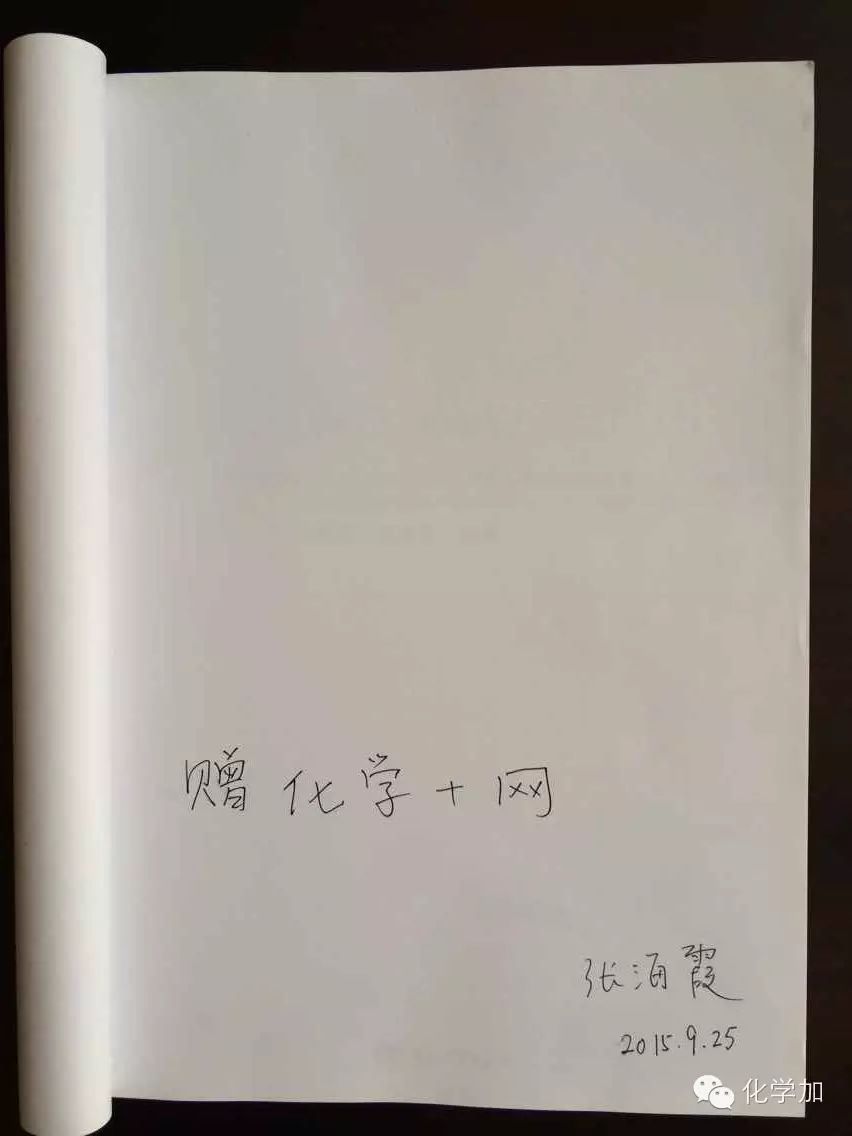 赠 化学+网
张海霞
2015.9.25
化学加